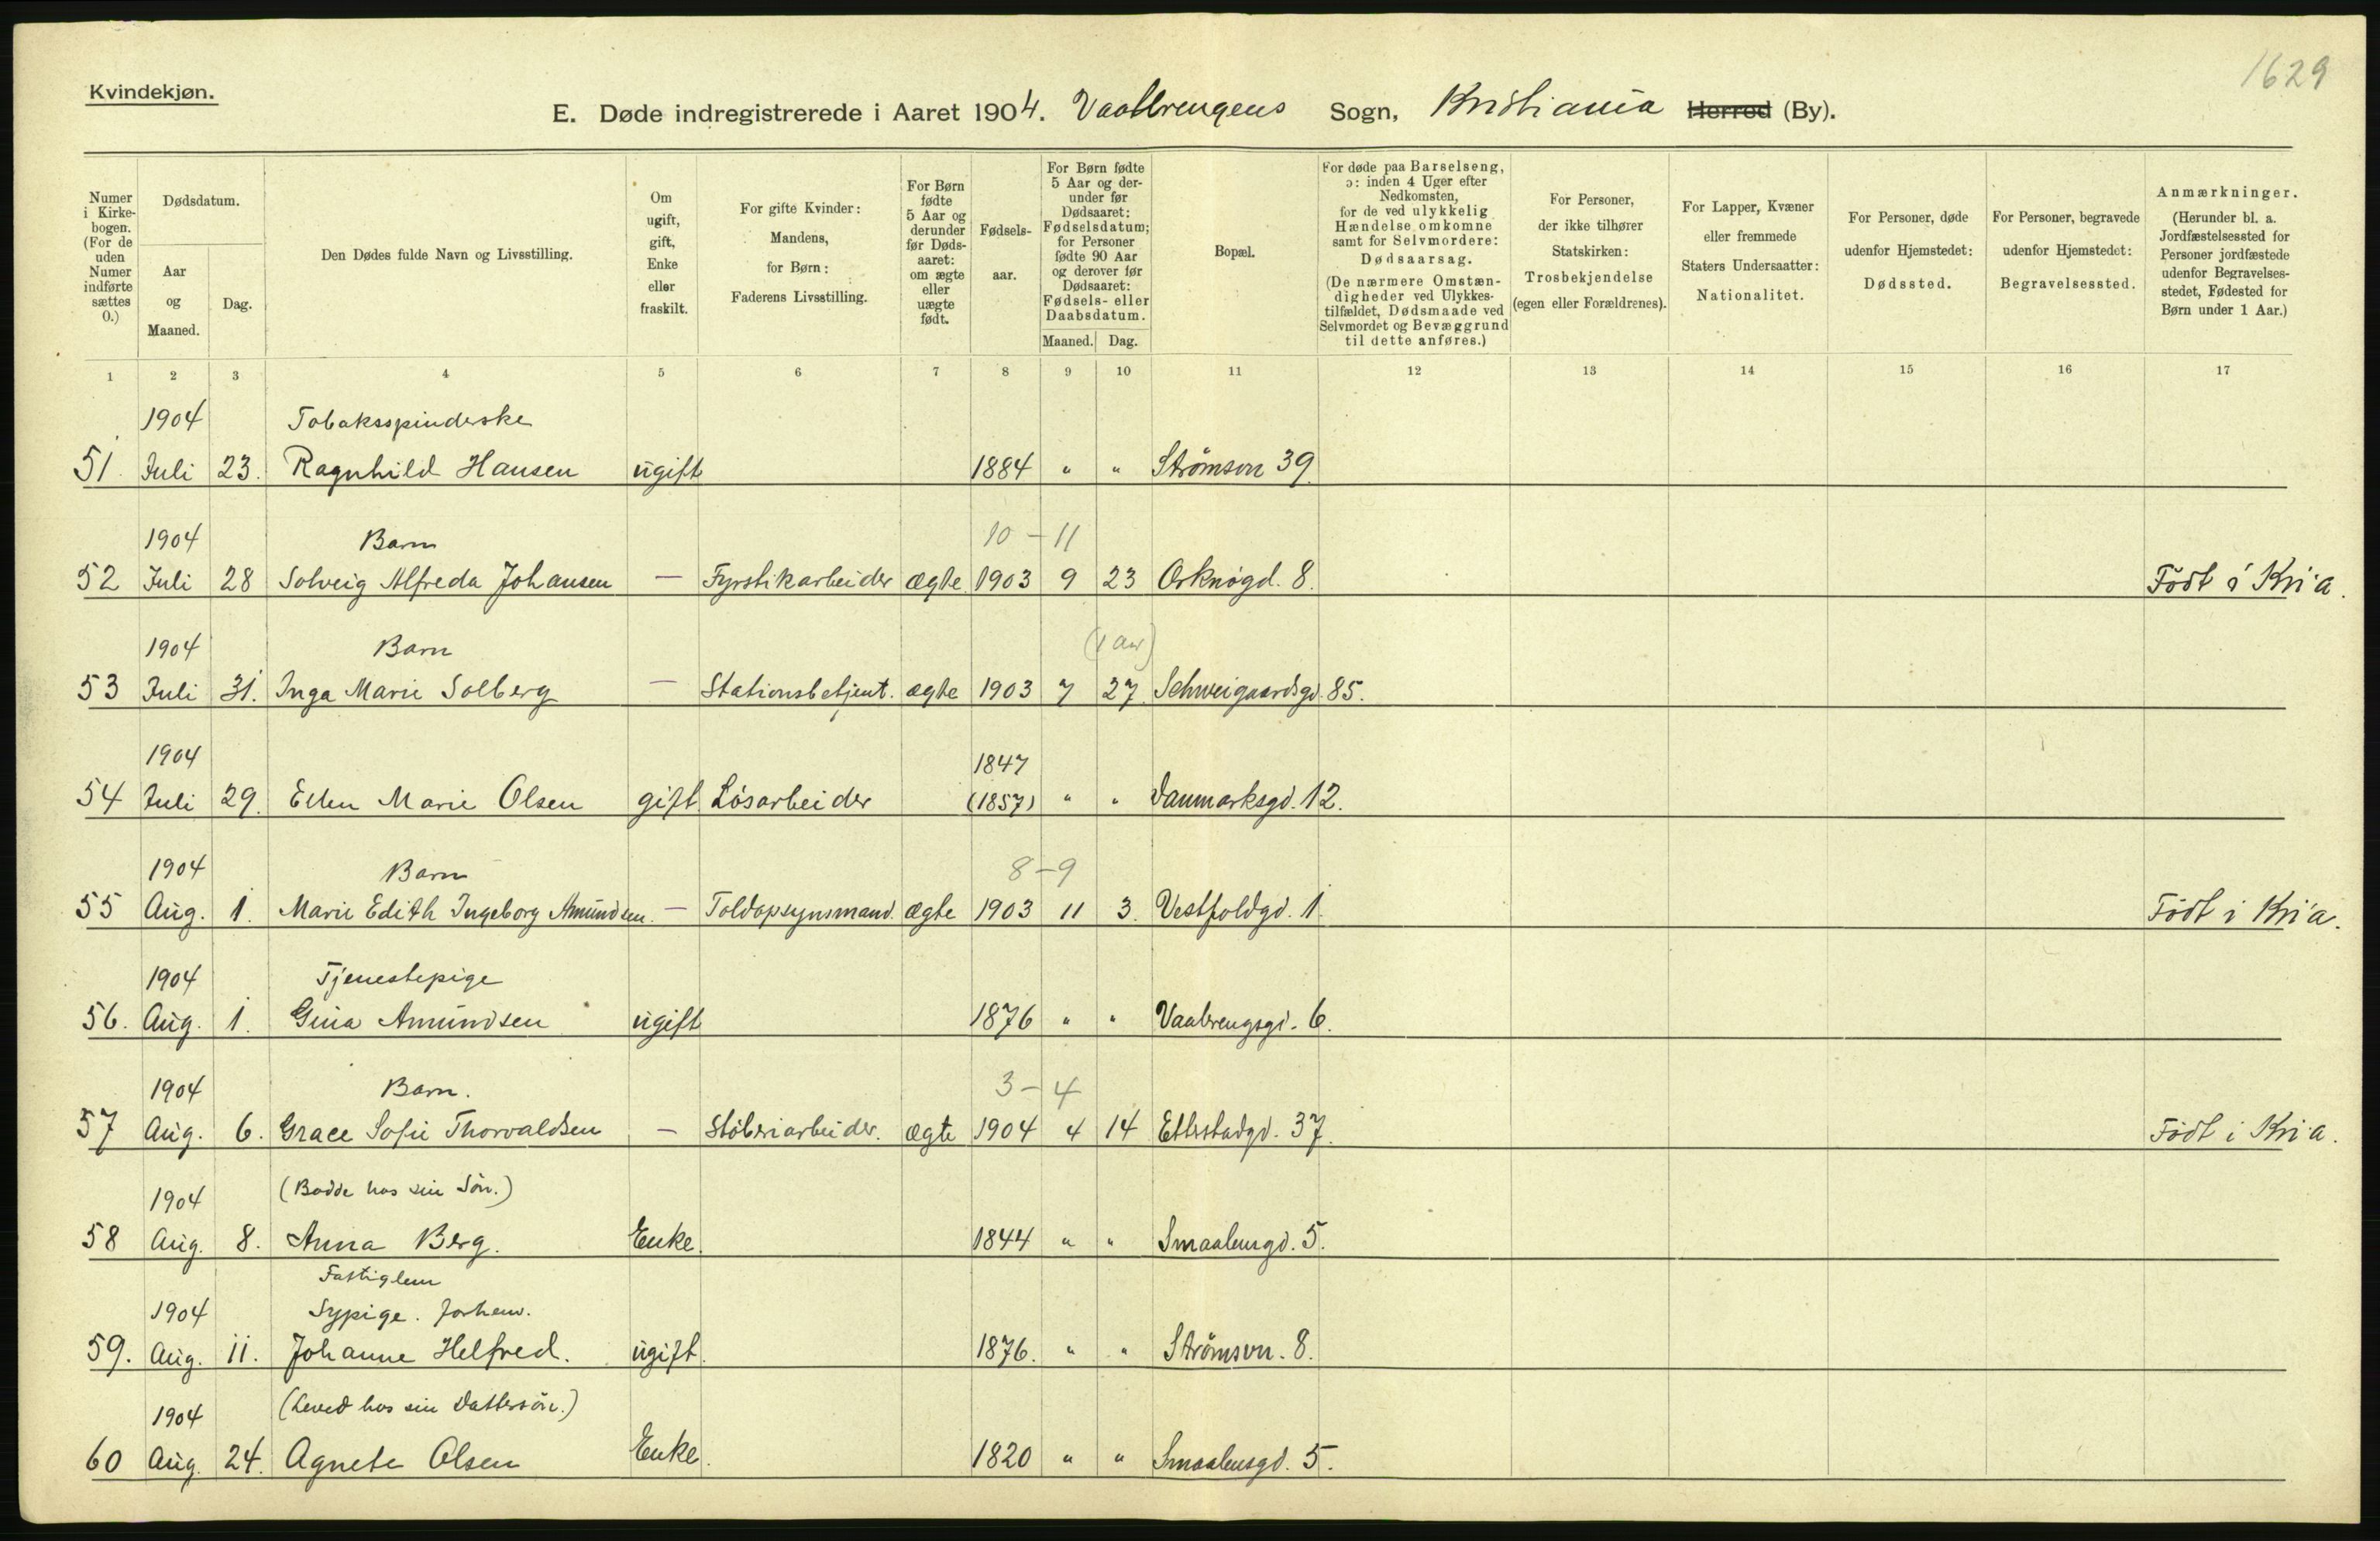 1629
Kvindekjøn.
E. Døde indregistrerede i Aaret 1904. Vaalerengens Sogn, Kristiania Herred (By).
Numer i Kirkebogen. (For de uden Numer indførte sættes 0.)
Dødsdatum.
Aar og Maaned.
Dag.
Den Dødes fulde Navn og Livsstilling.
Om ugift, gift, Enke eller fraskilt.
For gifte Kvinder: Mandens, for Børn: Faderens Livsstilling.
For Børn fødte 5 Aar og derunder før Dødsaaret: om ægte eller uægte født.
Fødsels-aar.
For Børn fødte 5 Aar og derunder før Dødsaaret: Fødselsdatum; for Personer fødte 90 Aar og derover før Dødsaaret: Fødsels- eller Daabsdatum.
Maaned. Dag.
Bopæl.
For døde paa Barselseng, ɔ: inden 4 Uger efter Nedkomsten, for de ved ulykkelig Hændelse omkomne samt for Selvmordere: Dødsaarsag. (De nærmere Omstændigheder ved Ulykkestilfældet, Dødsmaade ved Selvmordet og Bevæggrund til dette anføres.)
For Personer, der ikke tilhører Statskirken: Trosbekjendelse (egen eller Forældrenes).
For Lapper, Kvæner eller fremmede Staters Undersaatter: Nationalitet.
For Personer, døde udenfor Hjemstedet: Dødssted.
For Personer, begravede udenfor Hjemstedet: Begravelsessted.
Anmærkninger. (Herunder bl. a. Jordfæstelsessted for Personer jordfæstede udenfor Begravelsesstedet, Fødested for Børn under 1 Aar.)
1 2 3 4 5 6 7 8 9 10 11 12 13 14 15 16 17
1904 Tobaksspinderske
51. Juli 23. Ragnhild Hansen ugift 1884 " " Strömsvn 39.
1904 Barn 10-11
52 Juli 28 Solveig Alfreda Johansen — Fyrstikarbeider ægte 1903 9 23 Orknögd. 8. Födt i Kri'a.
1904 Barn (1 aar)
53 Juli 31. Inga Marie Solberg — Stationsbetjent. ægte 1903 7 27. Schweigaardsgd. 85.
1904 1847
54 Juli 29. Ellen Marie Olsen gift Lösarbeider (1857) " " Danmarksgd. 12.
1904 Barn 8-9
55 Aug. 1. Marie Edith Ingeborg Amundsen. — Toldopsynsmand. ægte 1903 11 3. Vestfoldgd. 1. Födt i Kri'a.
1904 Tjenestepige
56. Aug. 1. Gina Amundsen ugift 1876 " " Vaalerengsgd. 6.
1904 Barn. 3-4
57 Aug. 6. Grace Sofie Thorvaldsen — Stöberiarbeider. ægte 1904 4 14 Etterstadgd. 37. Födt i Kri'a.
1904 (Bodde hos sin Sön.)
58 Aug. 8. Anna Berg. Enke. 1844 " " Smaalensgd. 5.
Fattiglem
1904 Sypige. forhenv.
59. Aug. 11. Johanne Helfred. ugift. 1876. " " Strömsvn. 8.
1904 (Leved hos sin Dattersön.)
60 Aug. 24. Agnete Olsen Enke. 1820 " " Smaalensgd. 5.